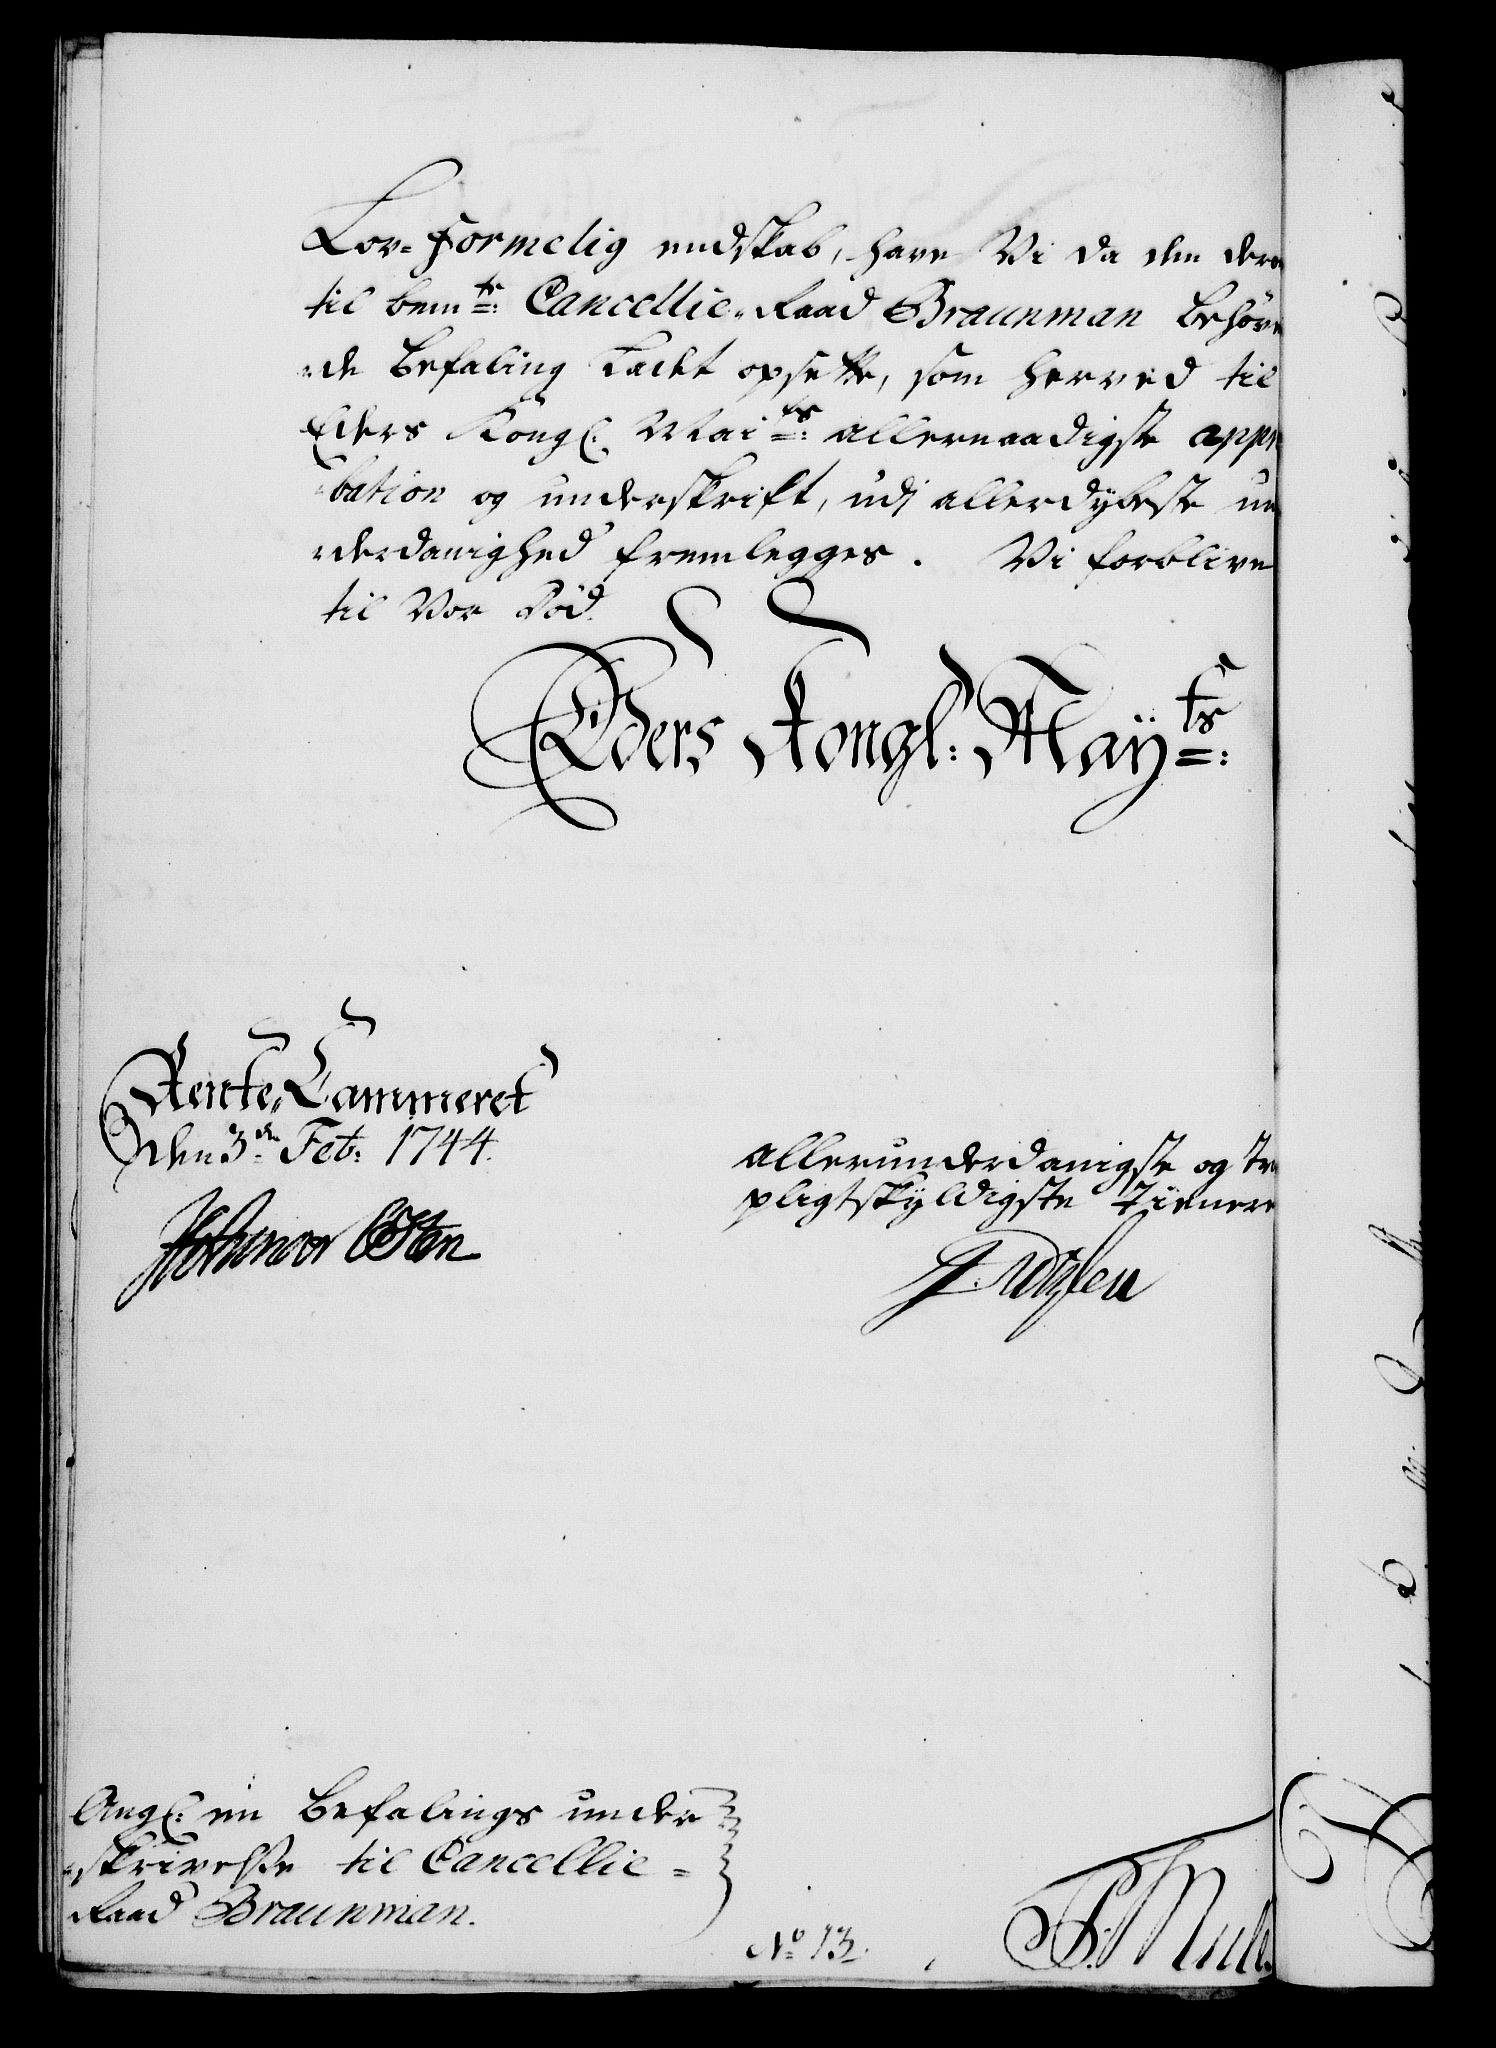 Lov-formelig endskab, have Vi da den der
til bemte: Cancellie-Raad Braunman behöve
de befaling ladet opsette, som herved til
Eders Kongl: Maits: allernaadigste appro
bation og underskrift, udj allerdybeste un
derdanighed fremlegges. Vi forblive
til Vor död.
Eders Kongl: Mayts:
Rente-Cammeret
den 3de Feb: 1744.
allerunderdanigste og tro
pligtskyldigste tienere
Angl: en befalings under
skrivelse til Cancellie-
Raad Braunman.
No 13.